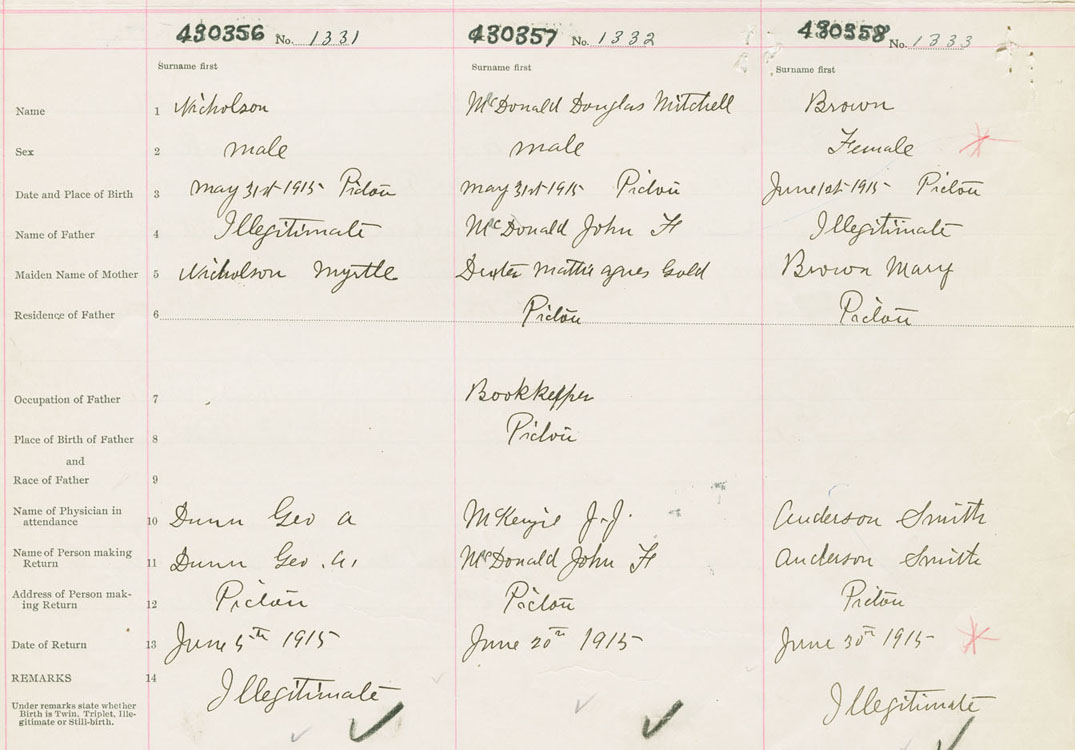 430356 No. 1331 430357 No. 1332 430358 No. 1333
Surname first Surname first Surname first
Name 1 Nicholson McDonald Douglas Mitchell Brown
Sex 2 male male Female
Date and Place of Birth 3 May 31st 1915 Pictou May 31st 1915 Pictou June 1st 1915 Pictou
Name of Father 4 Illegitimate McDonald John H Illegitimate
Maiden Name of Mother 5 Nicholson Myrtle Dexter Mattie Agnes Gold Brown Mary
Residence of Father 6 Pictou Pictou
Occupation of Father 7 Bookkeeper
Place of Birth of Father 8 Pictou
and
Race of Father 9
Name of Physician in
attendance 10 Dunn Geo A McKenzie J.J. Anderson Smith
Name of Person making
Return 11 Dunn Geo. A. McDonald John H Anderson Smith
Address of Person mak-
ing Return 12 Pictou Pictou Pictou
Date of Return 13 June 5th 1915 June 20th 1915 June 30th 1915
REMARKS 14 Illegitimate Illegitimate
Under remarks state whether
Birth is Twin, Triplet, Ille-
gitimate or Still-birth.